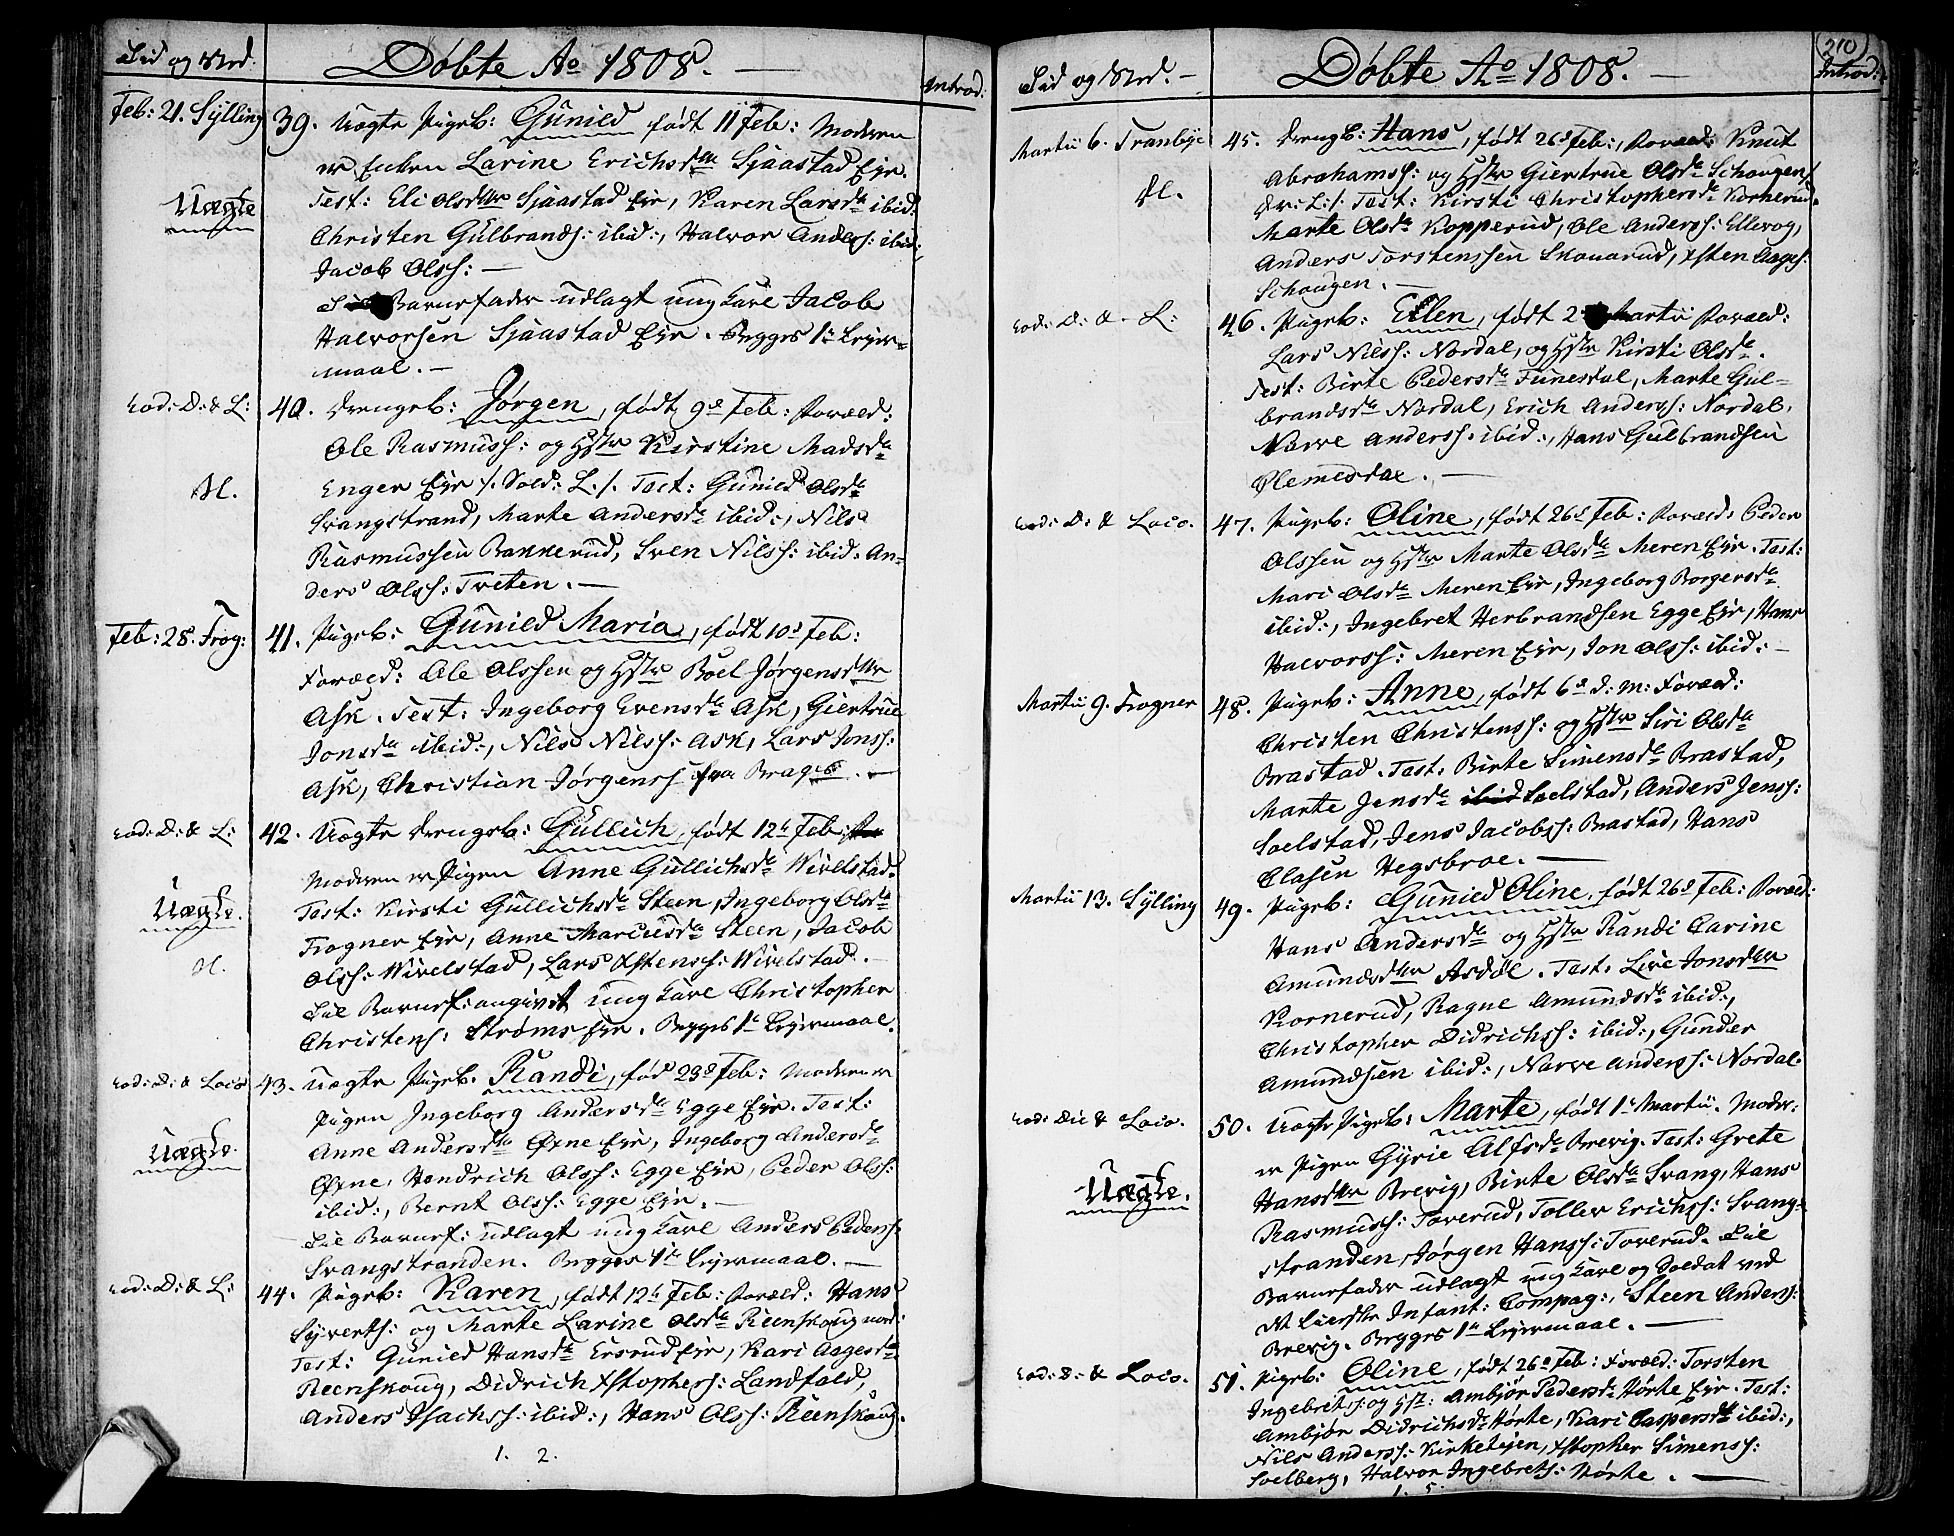 Tid og Sted.
Døbte Ao 1808.
Introd:
Feb: 21. Sylling
39. Uægte Pigeb: Gunild født 11 Feb: Moderen
er Enken Larine Erichsdtr Sjaastad Eje.
Uægte
Test: Eli Olsdttr Sjaastad Eje, Karen Larsdr ibid:
Christen Gulbrands: ibid:, Halvor Anders: ibid:,
Jacob Olss: —
Barnefader udlagt ung Karl Jacob
Halvorsen Sjaastad Eje. Begges 1te Leyer=
maal. —
eod: D: & L:
40. Drengeb: Jørgen, født 9de Feb: Foræld:
Ole Rasmuss: og Hstr Kirstine Madsdr
Enger Eje /. Sold: L./. Test: Gunild Olsdr
Svangstrand, Marte Andersdr ibid:, Nils
Rasmussen Bakkerud, Sven Nilss: ibid: An=
ders Olss: Treten. —
Feb: 28. Frog:
41. Pigeb: Gunild Maria, født 10de Feb:
Foræld: Ole Olssen og Hstr Boel Jørgensdttr
Ask. Test: Ingeborg Evensdr Ask, Giertrue
Jonsdr ibid:, Nils Nilss: Ask, Lars Jonss:
Ask, Christian Jørgenss fra Brages. —
eod: D: & L:
42. Uægte Drengeb: Gullich, født 12te Feb:
Moderen er Pigen Anne Gullichsdr Wivelstad.
Uægte.
Test: Kirsti Gullichsdr Steen, Ingeborg Olsdr
Frogner Eje, Anne Marcusdr Steen, Jacob
Olss: Wivelstad, Lars Xstenss: Wivelstad. —
Til Barnef: angivet ung Karl Christopher
Christens: Strøms Eje. Begges 1te Leyermaal.
eod: D: & Loco
43. Uægte Pigeb. Randi, fød 23de Feb: Moderen er
Pigen Ingeborg Andersdr Egge Eje. Test:
Uægte.
Anne Andersdtr Øxne Eje, Ingeborg Andersdr
Øxne, Hendrich Olss: Egge Eje, Peder Olss:
ibid:, Bernt Olss: Egge Eje. —
Til Barnef: udlagt ung Karl Anders Peders:
Svangstranden. Begges 1te Leyermaal. —
eod: D: & L:
44. Pigeb: Karen, født 12te Feb: Foræld: Hans
Syverts: og Marte Larine Olsdr Reenskoug nord:
Test: Gunild Hansdr Ersrud Eje, Kari Aagesdr
Reenskoug, Didrich Xstophers: Landfald,
Anders Isachss: ibid:, Hans Olss: Reenskoug.
1. 2.
Tid og Sted. —
Døbte Ao 1808. —
210
Introd:
Martii 6. Tranbye
45. Drengb: Hans, født 26de Feb:, Foræld: Knut
Abrahamss: og Hstr Giertrue Olsdr Schougen
Test: Kirsti Christophersdr Kornerud.
Marte Olsdr Kopperud, Ole Anderss: Ellevog,
Anders Torstenssen Skouarud, Xsten Aages:
Schougen. —
eod: D: & L:
46. Pigeb: Ellen, født 2 Martii Foræld:
Lars Nilss: Nordal, og Hstr Kirsti Olsdr.
Test: Birte Pedersdr Funesdal, Marte Gul=
brandsdr Nordal, Erich Anderss: Nordal,
Narve Anderss. ibid:, Hans Gulbrandsen
Flemesdal. —
eod: D: & Loco.
47. Pigeb: Oline, født 26de Feb: Foræld: Peder
Olssen og Hstr Marte Olsdr Meren Eje. Test:
Mari Olsdr Meren Eje, Ingeborg Borgersdr
ibid:, Ingebret Herbrandsen Egge Eje, Hans
Halvorss: Meren Eje, Jon Olss: ibid: —
Martii 9. Frogner
48. Pigeb: Anne, født 6de d: M: Foræld:
Christen Christenss: og Hstr Siri Olsdr
Brastad. Test: Birte Simensdr Brastad,
Marte Jensdr Soelstad, Anders Jenss:
Soelstad, Jens Jacobss: Brastad, Hans
Clasen Hegsbroe. —
Martii 13. Sylling
49. Pigeb: Gunild Oline, født 26de Feb: Foræld:
Hans Andersdr og Hstr Randi Carine
Amundsdtr Asdøl. Test: Live Jonsdtr
Kornerud, Ragne Amundsdr ibid:,
Christopher Didrichss: ibid:, Gunder
Amundsen ibid:, Narve Anderss: Nordal.
eod: Die & Loco.
50. Uægte Pigeb: Marte, født 1te Martii. Moder:
er Pigen Gyrie Alfsdr Brevig. Test: Grete
Uægte.
Hansdtr Brevig, Birte Olsdr Svang, Hans
Rasmuss: Toverud, Tollev Erichss: Svang=
stranden, Jørgen Hanss: Toverud. Til
Barnefader udlagt ung Karl og Soldat ved
N Lierske Infant: Compag:, Steen Anders:
Brevig. Begges 1te Leyermaal. —
eod: D: & Loco.
51. Pigeb: Oline, født 26de Feb: Foræld: Torsten
Ingebrets: og Hst: Ambjør Pedersdr Hørte Eje. Test:
Ambjør Didrichsdr Hørte, Kari Caspersdtr ibid:,
Nils Anderss: Kirkelejen, Xstopher Simenss:
Soelberg, Halvor Ingebrets: Hørte. —
1. 5.